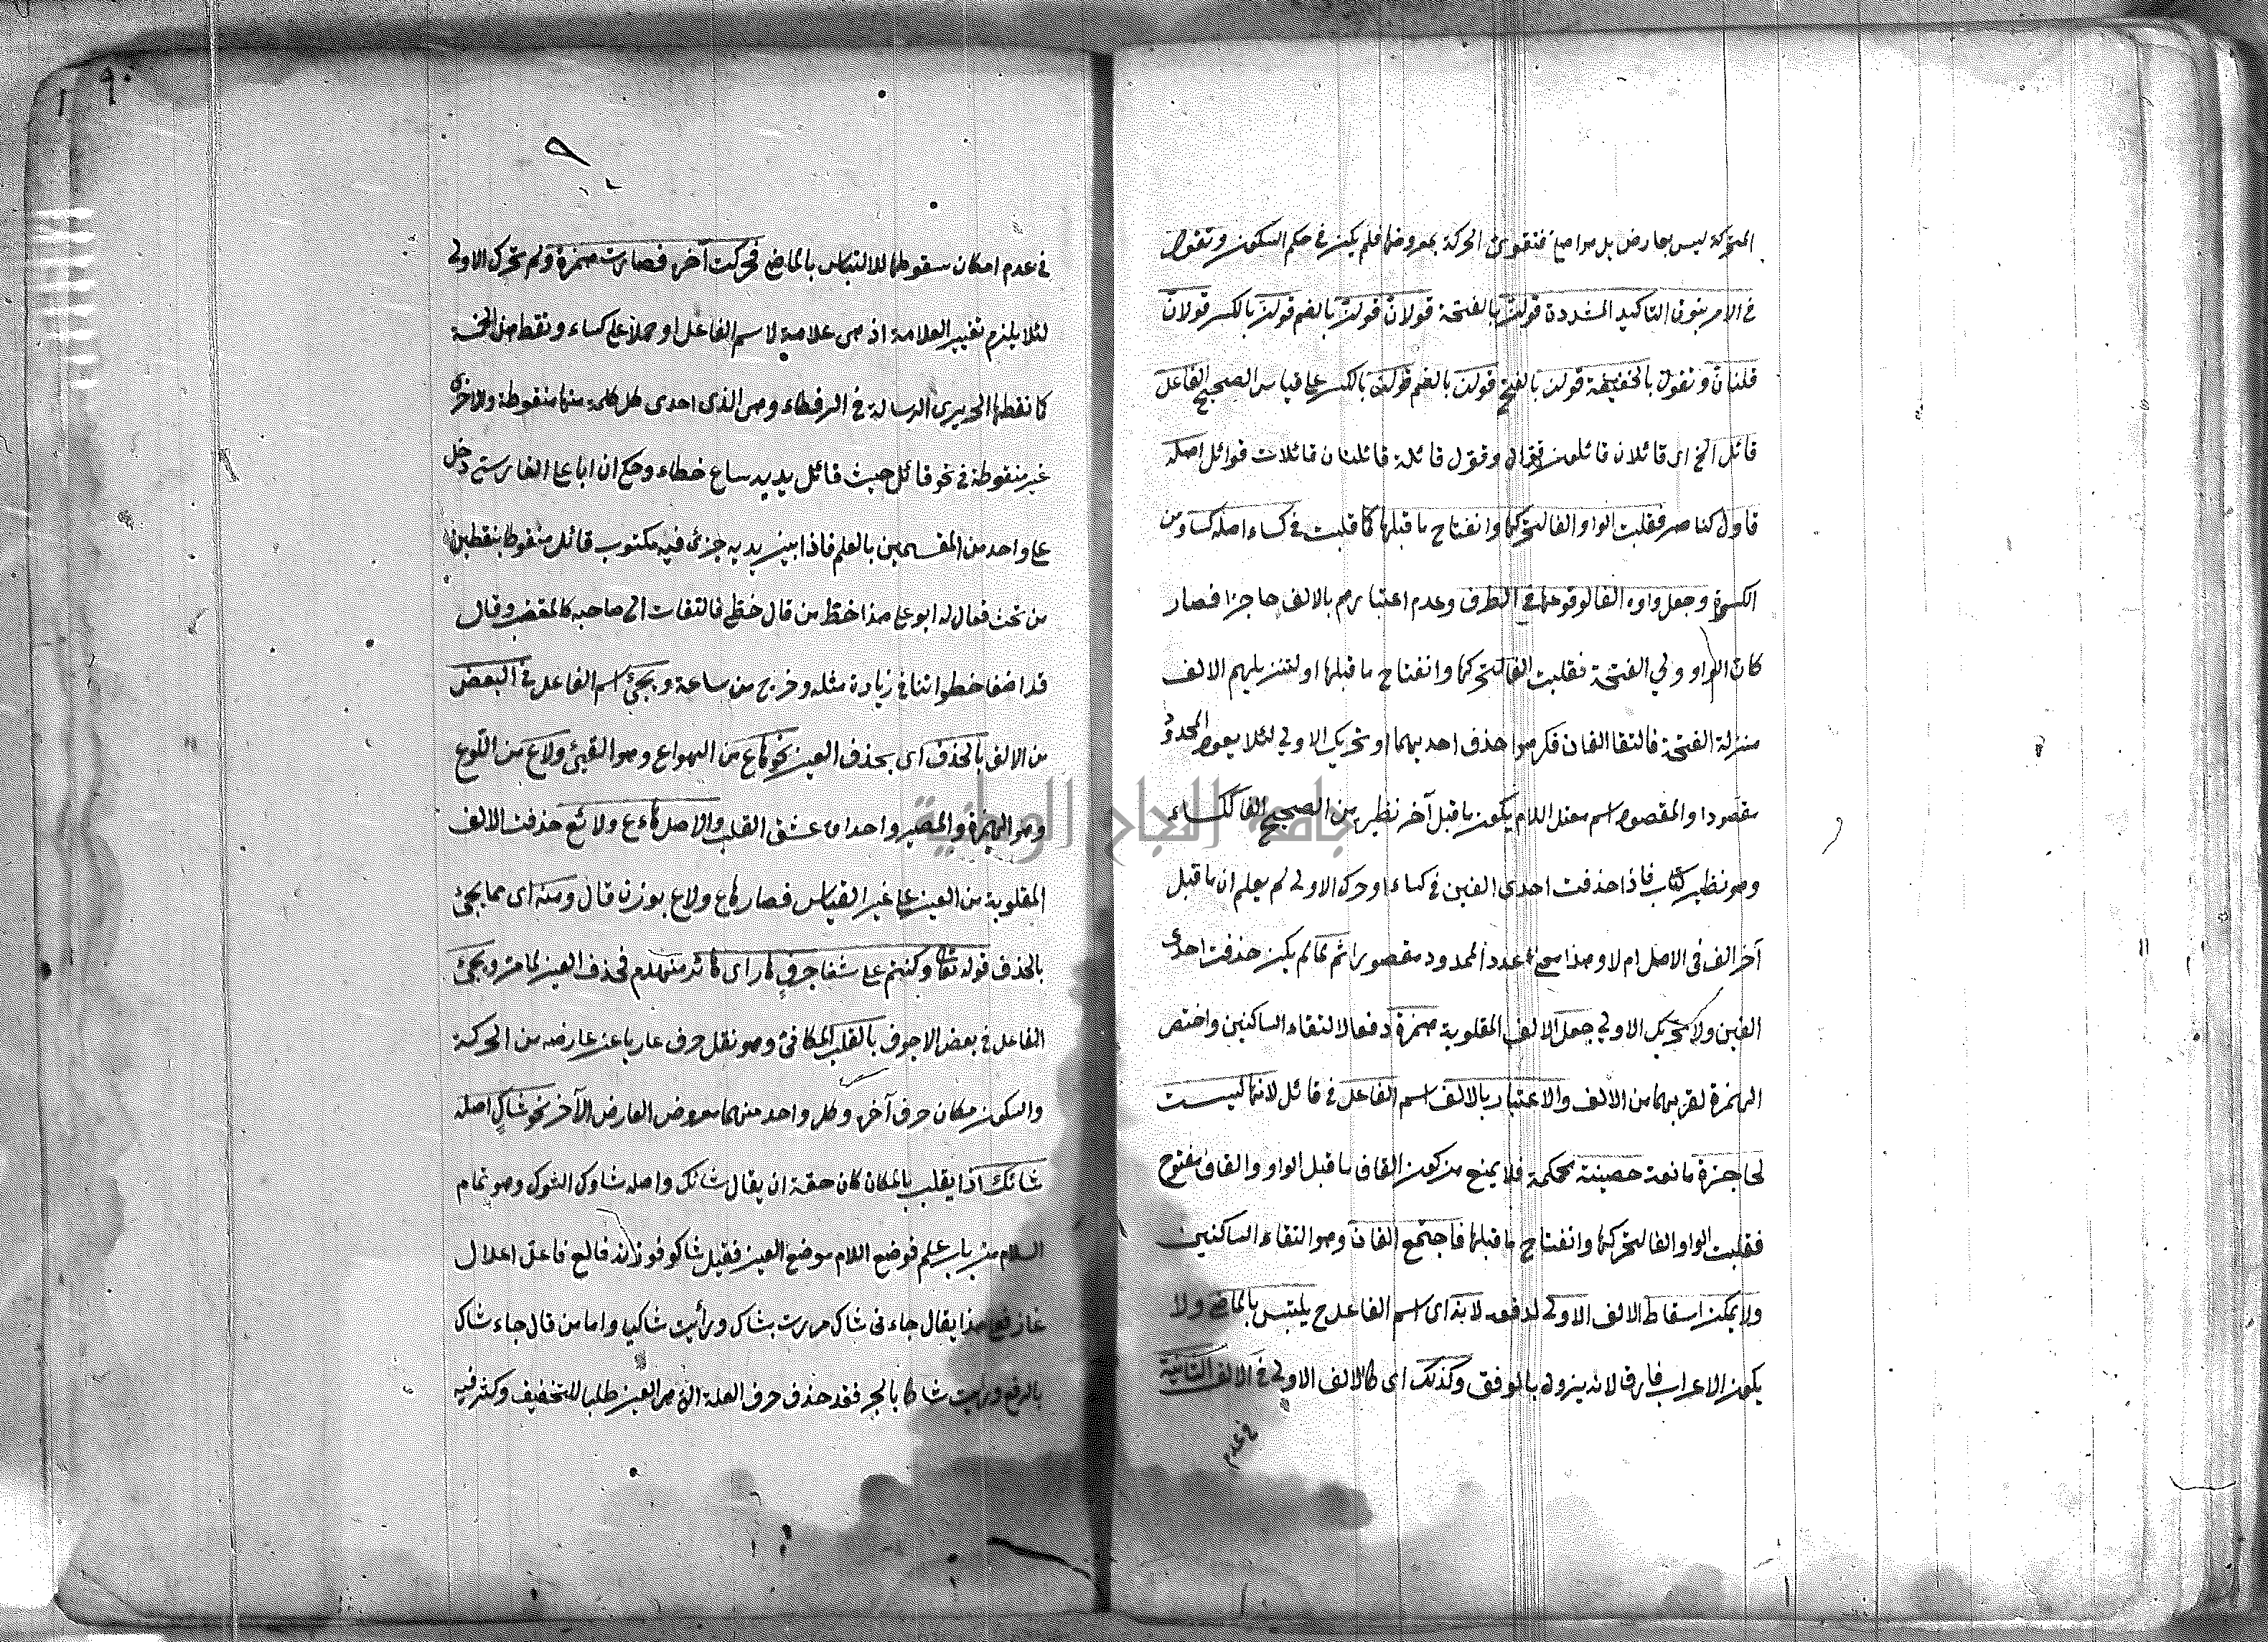 المتحركة ليس بعارض بل هو اصلي فتقوي الحركة بعروضها فلم يكن في حكم السكون وتقول
في الامر بنون التاكيد المشددة قولن بالفتحة قولان قولن بالضم قولن بالكسر قولان
قلنان وتقول بالخفيفة قولن بالفتح قولن بالضم قولن بالكسر على قياس الصحيح الفاعل
قائل الخ اى قائلان قائلون وقول قائلة قائلتان قائلات قوائل اصله
قاول كناصر فقلبت الواو الفا لتحركها وانفتاح ما قبلها كما قلبت في كساء اصله كساو من
الكسوة وجعل واوه الفا لوقوعها في الطرف وعدم اعتبارهم بالالف حاجزا فصار
كان الواو ولي الفتحة فقلبت الفا لتحركها وانفتاح ما قبلها او لتنزيلهم الالف
منزلة الفتحة فالتقا الفان فكرهوا حذف احديهما او تحريك الاولى لئلا يعود الممدود
مقصورا والمقصور اسم معتل اللام يكون ما قبل آخر نظيره من الصحيح الفا ككساء
وهو نظير كتاب فاذا حذفت احدى الفين في كساء او حرك الاولى لم يعلم ان ما قبل
آخر الف في الاصل ام لا وهذا معنى عدد الممدود مقصورا ثم لما لم يكن حذفت احدى
الفين ولا تحريك الاولى جعل الالف المقلوبة همزة دفعا لالتقاء الساكنين واختص
الهمزة لقربهما من الالف والاعتبار بالالف اسم الفاعل في قائل لانها ليست
لحاجزة مانعة حصينة محكمة فلا يمنع من كون القاف ما قبل الواو والقاف مفتوح
فقلبت الواو الفا لتحركها وانفتاح ما قبلها فاجتمع الفان وهو التقاء الساكنين
ولا يمكن اسقاط الالف الاولى لدفعه لانه اى اسم الفاعل ح يلتبس بالماضي ولا
يكون الاعراب فارقا لانه يزول بالوقف وكذلك اى كالالف الاولى في الالف الثانية
في عدم
٩٠
في عدم امكان سقوطها للالتباس بالماضي فحركت آخره فصارت همزة ولم تحرك الاولى
لئلا يلزم تغيير العلامة اذ هى علامة لاسم الفاعل او حملا على كساء ونقط
كا نقطها الحريرى الرسالة في الرقطاء وهى الذى احدى كل كلمة منها منقوطة والاخرى
غير منقوطة في نحو قائل حيث قائل يديد ساع خطاء وحكى ان ابا على الفارسى دخل
على واحد من المقسمين بالعلم فاذا بين يديه جزئ فيه مكتوب قائل منقوط بنقطين
من تحت فقال له ابو على هذا خط من قال خطى فالتفات الى صاحبه كالمغضب وقال
قد اضفنا خطواتنا في زيارة مثله وخرج من ساعة ويجئ اسم الفاعل في البعض
من الالف بالحذف اى بحذف العين نحو هاع من الهواع وهو القيئ ولاع من اللوع
وهو الهمزة والمصير واحداى عشق القلب والاصل هاءع ولائع حذفت الالف
المقلوبة من العين على غير القياس فصار هاع ولاع بوزن قال ومنه اى مما يجئ
بالحذف قوله تعا وكنتم على شفا جرف هار اى هائر منهدم فحذف العين لما مر ويجئ
الفاعل في بعض الاجوف بالقلب المكانئ وهو نقل حرف عاريا عن عارضه من الحركة
والسكون مكان حرف آخر وكل واحد منهما معروض العارض الآخر نحو شاكٍ اصله
شائك اذا يقلب بالمكان كان حقه ان يقال شائك واصله شاوك الشوك وهو تمام
السلام من باب علم فوضع اللام موضع العين فقيل شاكو فوزنه فالع فاعل اعلال
غاز فعلى هذا يقال جاءنى شاك مررت بشاك ورأيت شاكيا واما من قال جاء شاك
بالرفع ورأيت شاكا بالجر فقد حذف حرف العلة التى هى العين طلبا للتخفيف وكثر فيه
جامعة النجاح الوطنية